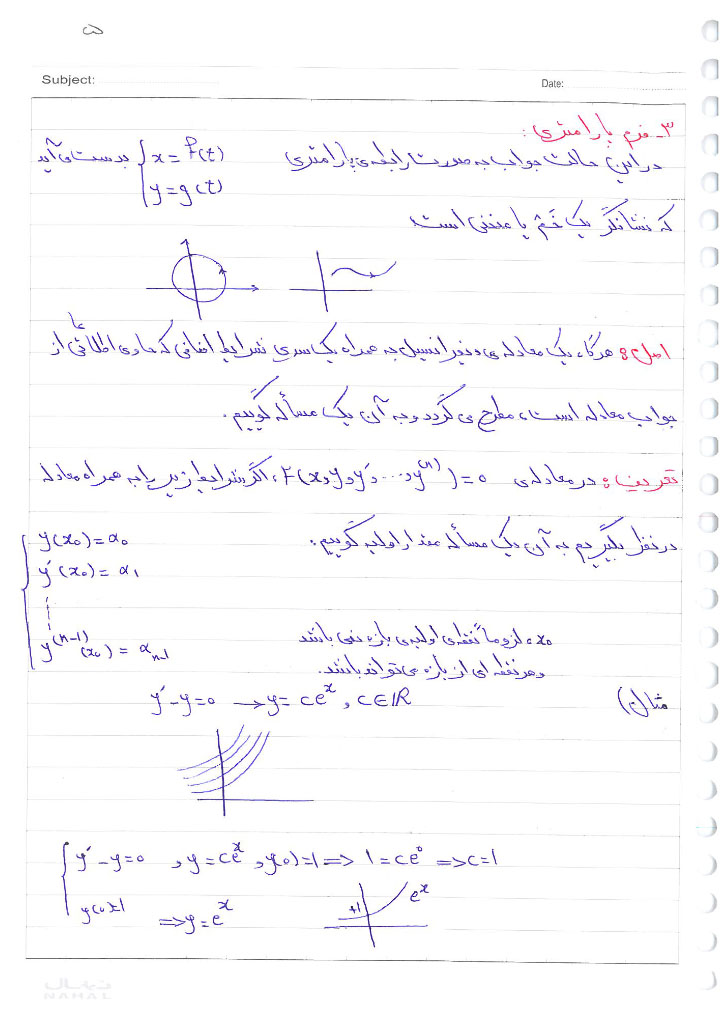 ۵
Subject:
Date:
۳- فرم پارامتری:
در این حالت جواب به صورت رابطه‌ی پارامتری { x = f(t) بدست می آید
y = g(t)
که نشانگر یک خم یا منحنی است
اصل: هرگاه یک معادله ی دیفرانسیل به همراه یک سری شرایط اضافی که حاوی اطلاعاتی از
جواب معادله است، مطرح می گردد و به آن یک مسأله گوییم.
تعریف: در معادله ی F(x, y, y′, ..., y^(n)) = 0، اگر شرایط زیر را به همراه معادله
در نظر بگیریم به آن یک مسأله مقدار اولیه گوییم:
y(x₀) = α₀
y′(x₀) = α₁
y^(n-1)(x₀) = α_n-1
x₀، لزوماً نقطه ی اولیه ی بازه نمی باشد
و هر نقطه ای از بازه می تواند باشد.
مثال) y′ - y = 0 → y = ce^x, c ∈ IR
{ y′ - y = 0 , y = ce^x , y(0) = 1 => 1 = ce^0 => c = 1
y(0) = 1 => y = e^x
+1 e^x
نهال
NAHAL